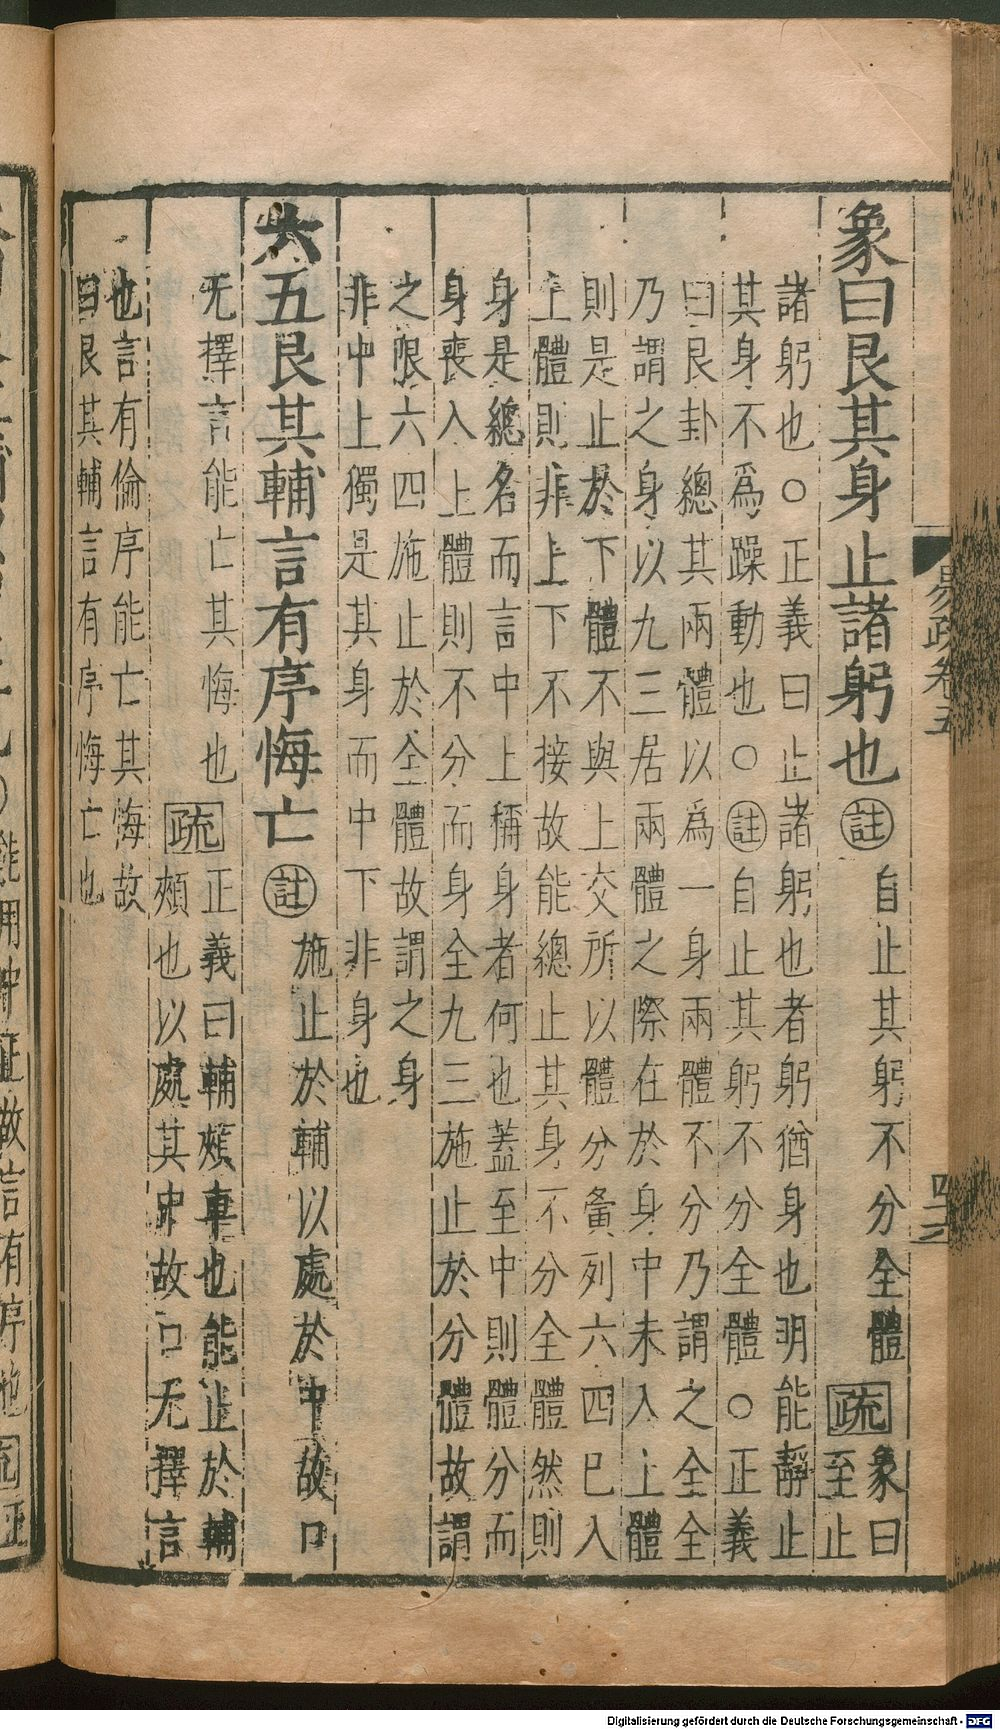 易疏卷五
象曰艮其身止諸躬也註自止其躬不分全體疏象曰
至止
諸躬也○正義曰止諸躬也者躬猶身也明能靜止
其身不爲躁動也○註自止其躬不分全體○正義
曰艮卦總其兩體以爲一身兩體不分乃謂之全全
乃謂之身以九三居兩體之際在於身中未入上體
則是止於下體不與上交所以體分夤列六四巳入
上體則非上下不接故能總止其身不分全體然則
身是總名而言中上稱身者何也蓋至中則體分而
身喪入上體則不分而身全九三施止於分體故謂
之限六四施止於全體故謂之身
非中上獨是其身而中下非身也
六五艮其輔言有序悔亡註施止於輔以處於中故口
无擇言能亡其悔也疏正義曰輔頰車也能止於輔
頰也以處其中故口无擇言
也言有倫序能亡其悔故
曰艮其輔言有序悔亡也
○能用中正故言有序也疏正
Digitalisierung gefördert durch die Deutsche Forschungsgemeinschaft - DFG